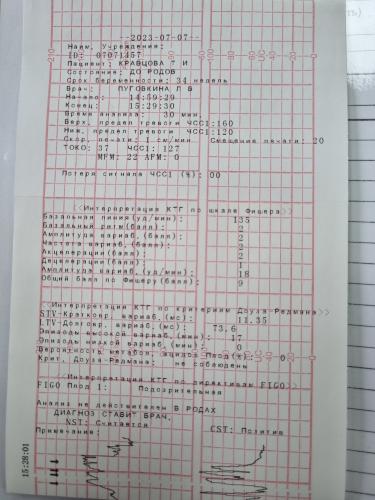 --2023-07-07--
Наим. Учреждения:
ID: 07071457
Пациент: КРАВЦОВА Т И
Состояние: ДО РОДОВ
Срок беременности: 34 недель
Врач: ПУГОВКИНА Л В
Начало: 14:59:29
Конец: 15:29:30
Время анализа: 30 мин.
Верх. предел тревоги ЧСС1:160
Ниж. предел тревоги ЧСС1:120
Скор. печати: 1 см/мин. Смещение печати: 20
ТОКО: 37 ЧСС1: 127
MFM: 22 AFM: 0
Потеря сигнала ЧСС1 (%): 00
<<Интерпретация КТГ по шкале Фишера>>
Базальная линия(уд/мин): 135
Базальный ритм(балл): 2
Амплитуда вариаб.(балл): 2
Частота вариаб.(балл): 2
Акцелерации(балл): 2
Децелерации(балл): 1
Амплитуда вариаб.(уд/мин): 18
Общий балл по Фишеру(балл): 9
<<Интерпретация КТГ по критериям Доуза-Редмана>>
STV-Кратковр. вариаб.(мс): 11.35
LTV-Долговр. вариаб.(мс): 73,6
Эпизоды высокой вариаб.(мин): 17
Эпизоды низкой вариаб.(мин): 0
Вероятность метабол. ацидоз Плод(%): 0
Крит. Доуза-Редмана: не соблюдены
<<Интерпретация КТГ по директивам FIGO>>
FIGO Плод 1: Подозрительная
Анализ не действителен В РОДАХ
ДИАГНОЗ СТАВИТ ВРАЧ.
NST: Считается CST: Позитив
Примечания:
15:28:01